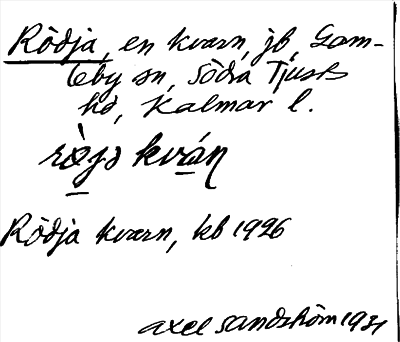 Rödja, en kvarn, jb, Gam-
leby sn, Södra Tjusts
hd, Kalmar l.
rö̀jə kvár̩n
Rödja kvarn, kb 1926
Axel Sandström 1931